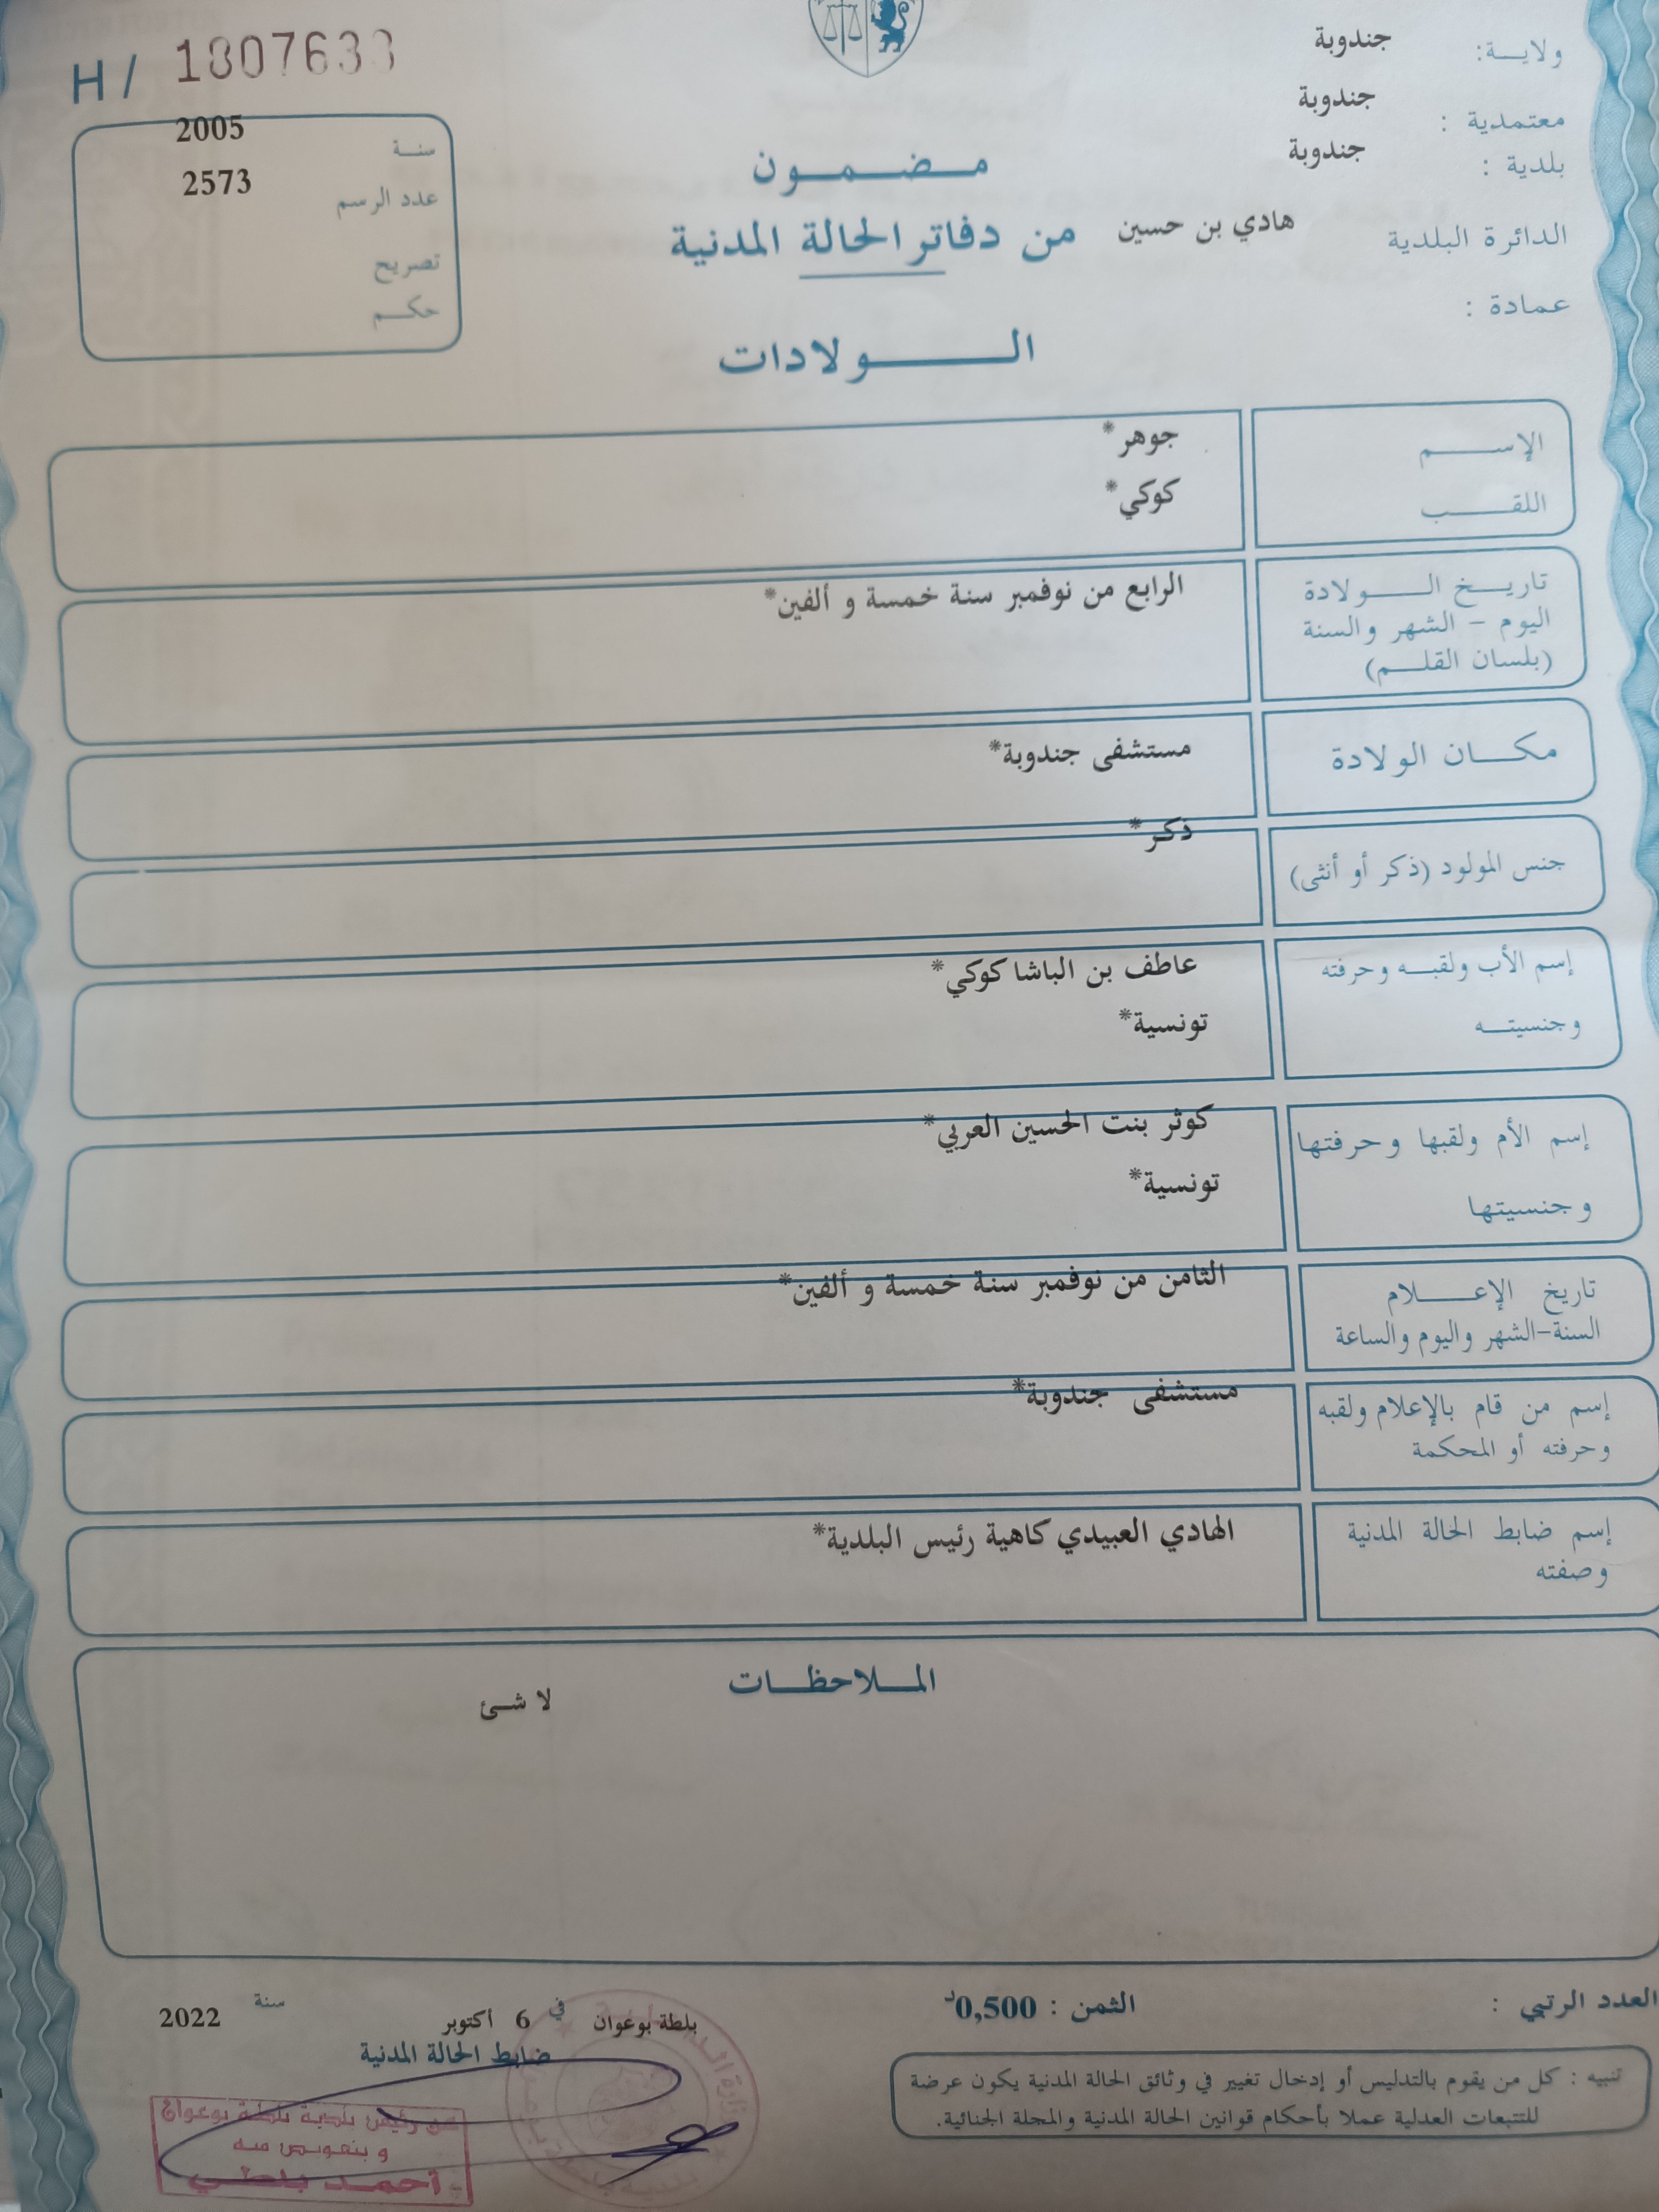 H / 1807633
ولاية: جندوبة
معتمدية : جندوبة
بلدية : جندوبة
الدائرة البلدية هادي بن حسين
عمادة :
سنة 2005
عدد الرسم 2573
تصريح
حكم
مضمون
من دفاتر الحالة المدنية
الولادات
الإسم جوهر*
اللقب كوكي*
تاريخ الولادة الرابع من نوفمبر سنة خمسة و ألفين*
اليوم - الشهر والسنة
(بلسان القلم)
مكان الولادة مستشفى جندوبة*
جنس المولود (ذكر أو أنثى) ذكر*
إسم الأب ولقبه وحرفته عاطف بن الباشا كوكي*
وجنسيته تونسية*
إسم الأم ولقبها وحرفتها كوثر بنت الحسين العربي*
وجنسيتها تونسية*
تاريخ الإعلام الثامن من نوفمبر سنة خمسة و ألفين*
السنة-الشهر واليوم والساعة
إسم من قام بالإعلام ولقبه مستشفى جندوبة*
وحرفته أو المحكمة
إسم ضابط الحالة المدنية الهادي العبيدي كاهية رئيس البلدية*
وصفته
الملاحظات
لا شئ
العدد الرتبي :
الثمن : 0,500د
بلطة بوعوان في 6 أكتوبر سنة 2022
ضابط الحالة المدنية
تنبيه : كل من يقوم بالتدليس أو إدخال تغيير في وثائق الحالة المدنية يكون عرضة
للتتبعات العدلية عملا بأحكام قوانين الحالة المدنية والمجلة الجنائية.
عن رئيس بلدية بلطة بوعوان
و بتفويض منه
أحمد بلطي